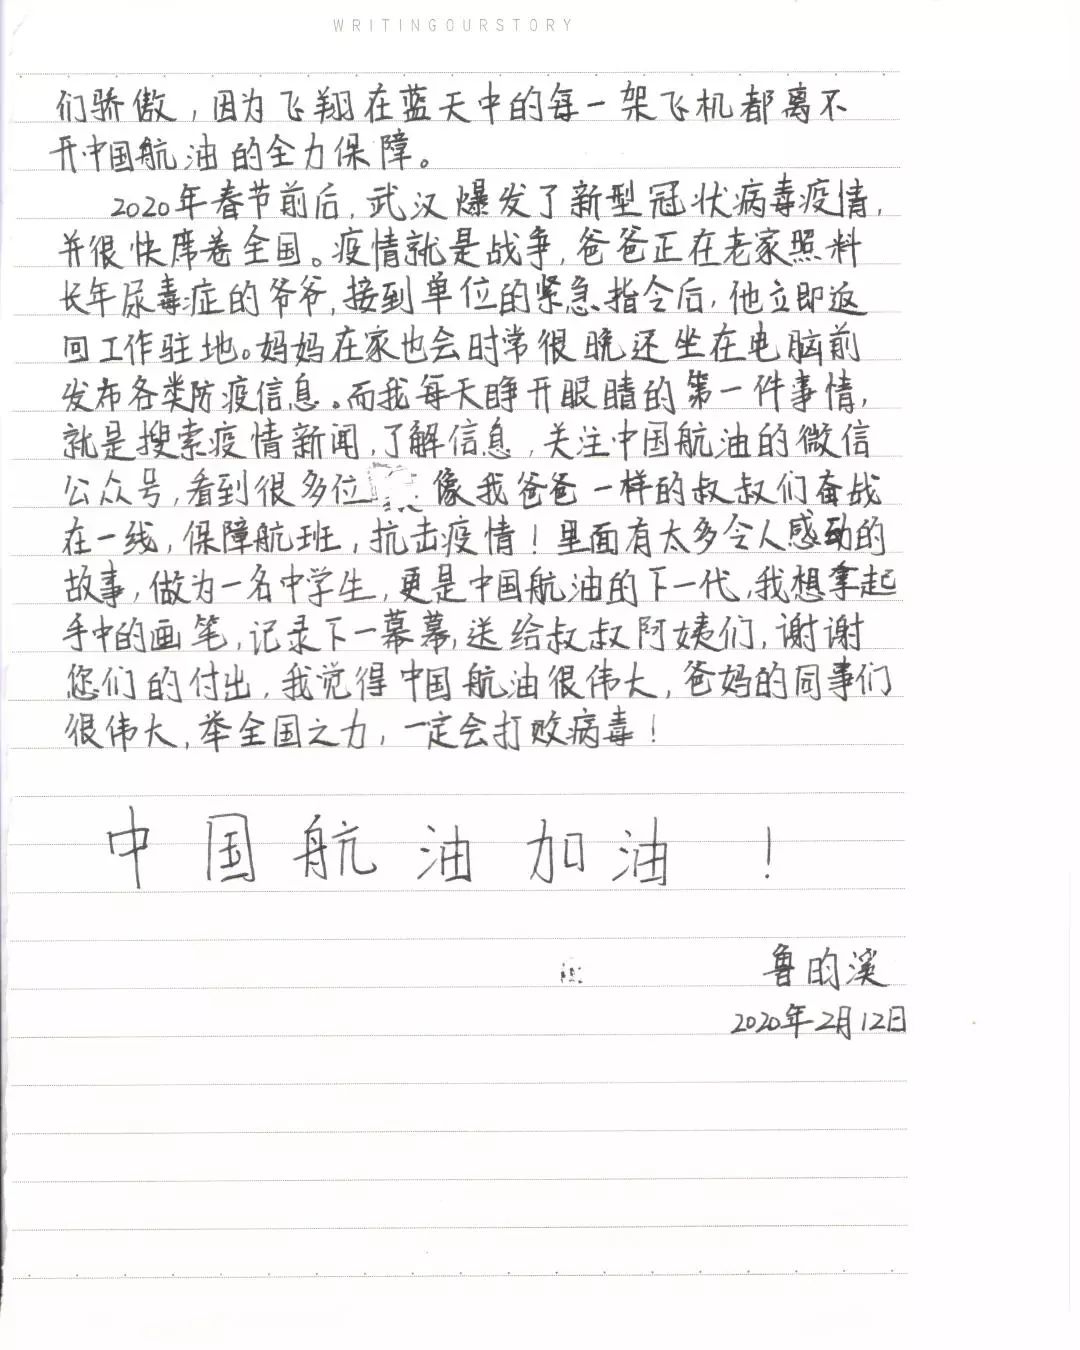 WRITINGOURSTORY
们骄傲，因为飞翔在蓝天中的每一架飞机都离不
开中国航油的全力保障。
2020年春节前后，武汉爆发了新型冠状病毒疫情，
并很快席卷全国。疫情就是战争，爸爸正在老家照料
长年尿毒症的爷爷，接到单位的紧急指令后，他立即返
回工作驻地。妈妈在家也会时常很晚还坐在电脑前
发布各类防疫信息。而我每天睁开眼睛的第一件事情，
就是搜索疫情新闻，了解信息，关注中国航油的微信
公众号，看到很多位像我爸爸一样的叔叔们奋战
在一线，保障航班，抗击疫情！里面有太多令人感动的
故事，做为一名中学生，更是中国航油的下一代，我想拿起
手中的画笔，记录下一幕幕，送给叔叔阿姨们，谢谢
您们的付出，我觉得中国航油很伟大，爸妈的同事们
很伟大，举全国之力，一定会打败病毒！
中国航油加油！
鲁昀溪
2020年2月12日